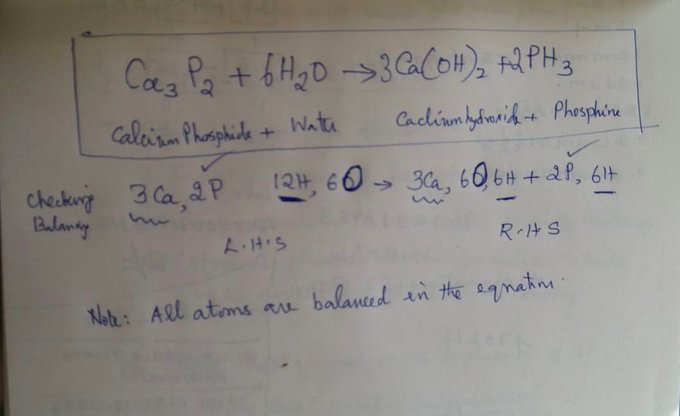 Ca₃P₂ + 6H₂O → 3Ca(OH)₂ + 2PH₃
Calcium Phosphide + Water Caclium hydroxide + Phosphine
Checking Balancing 3Ca, 2P 12H, 6O → 3Ca, 6O, 6H + 2P, 6H
L.H.S R.H.S
Note: All atoms are balanced in the equation.